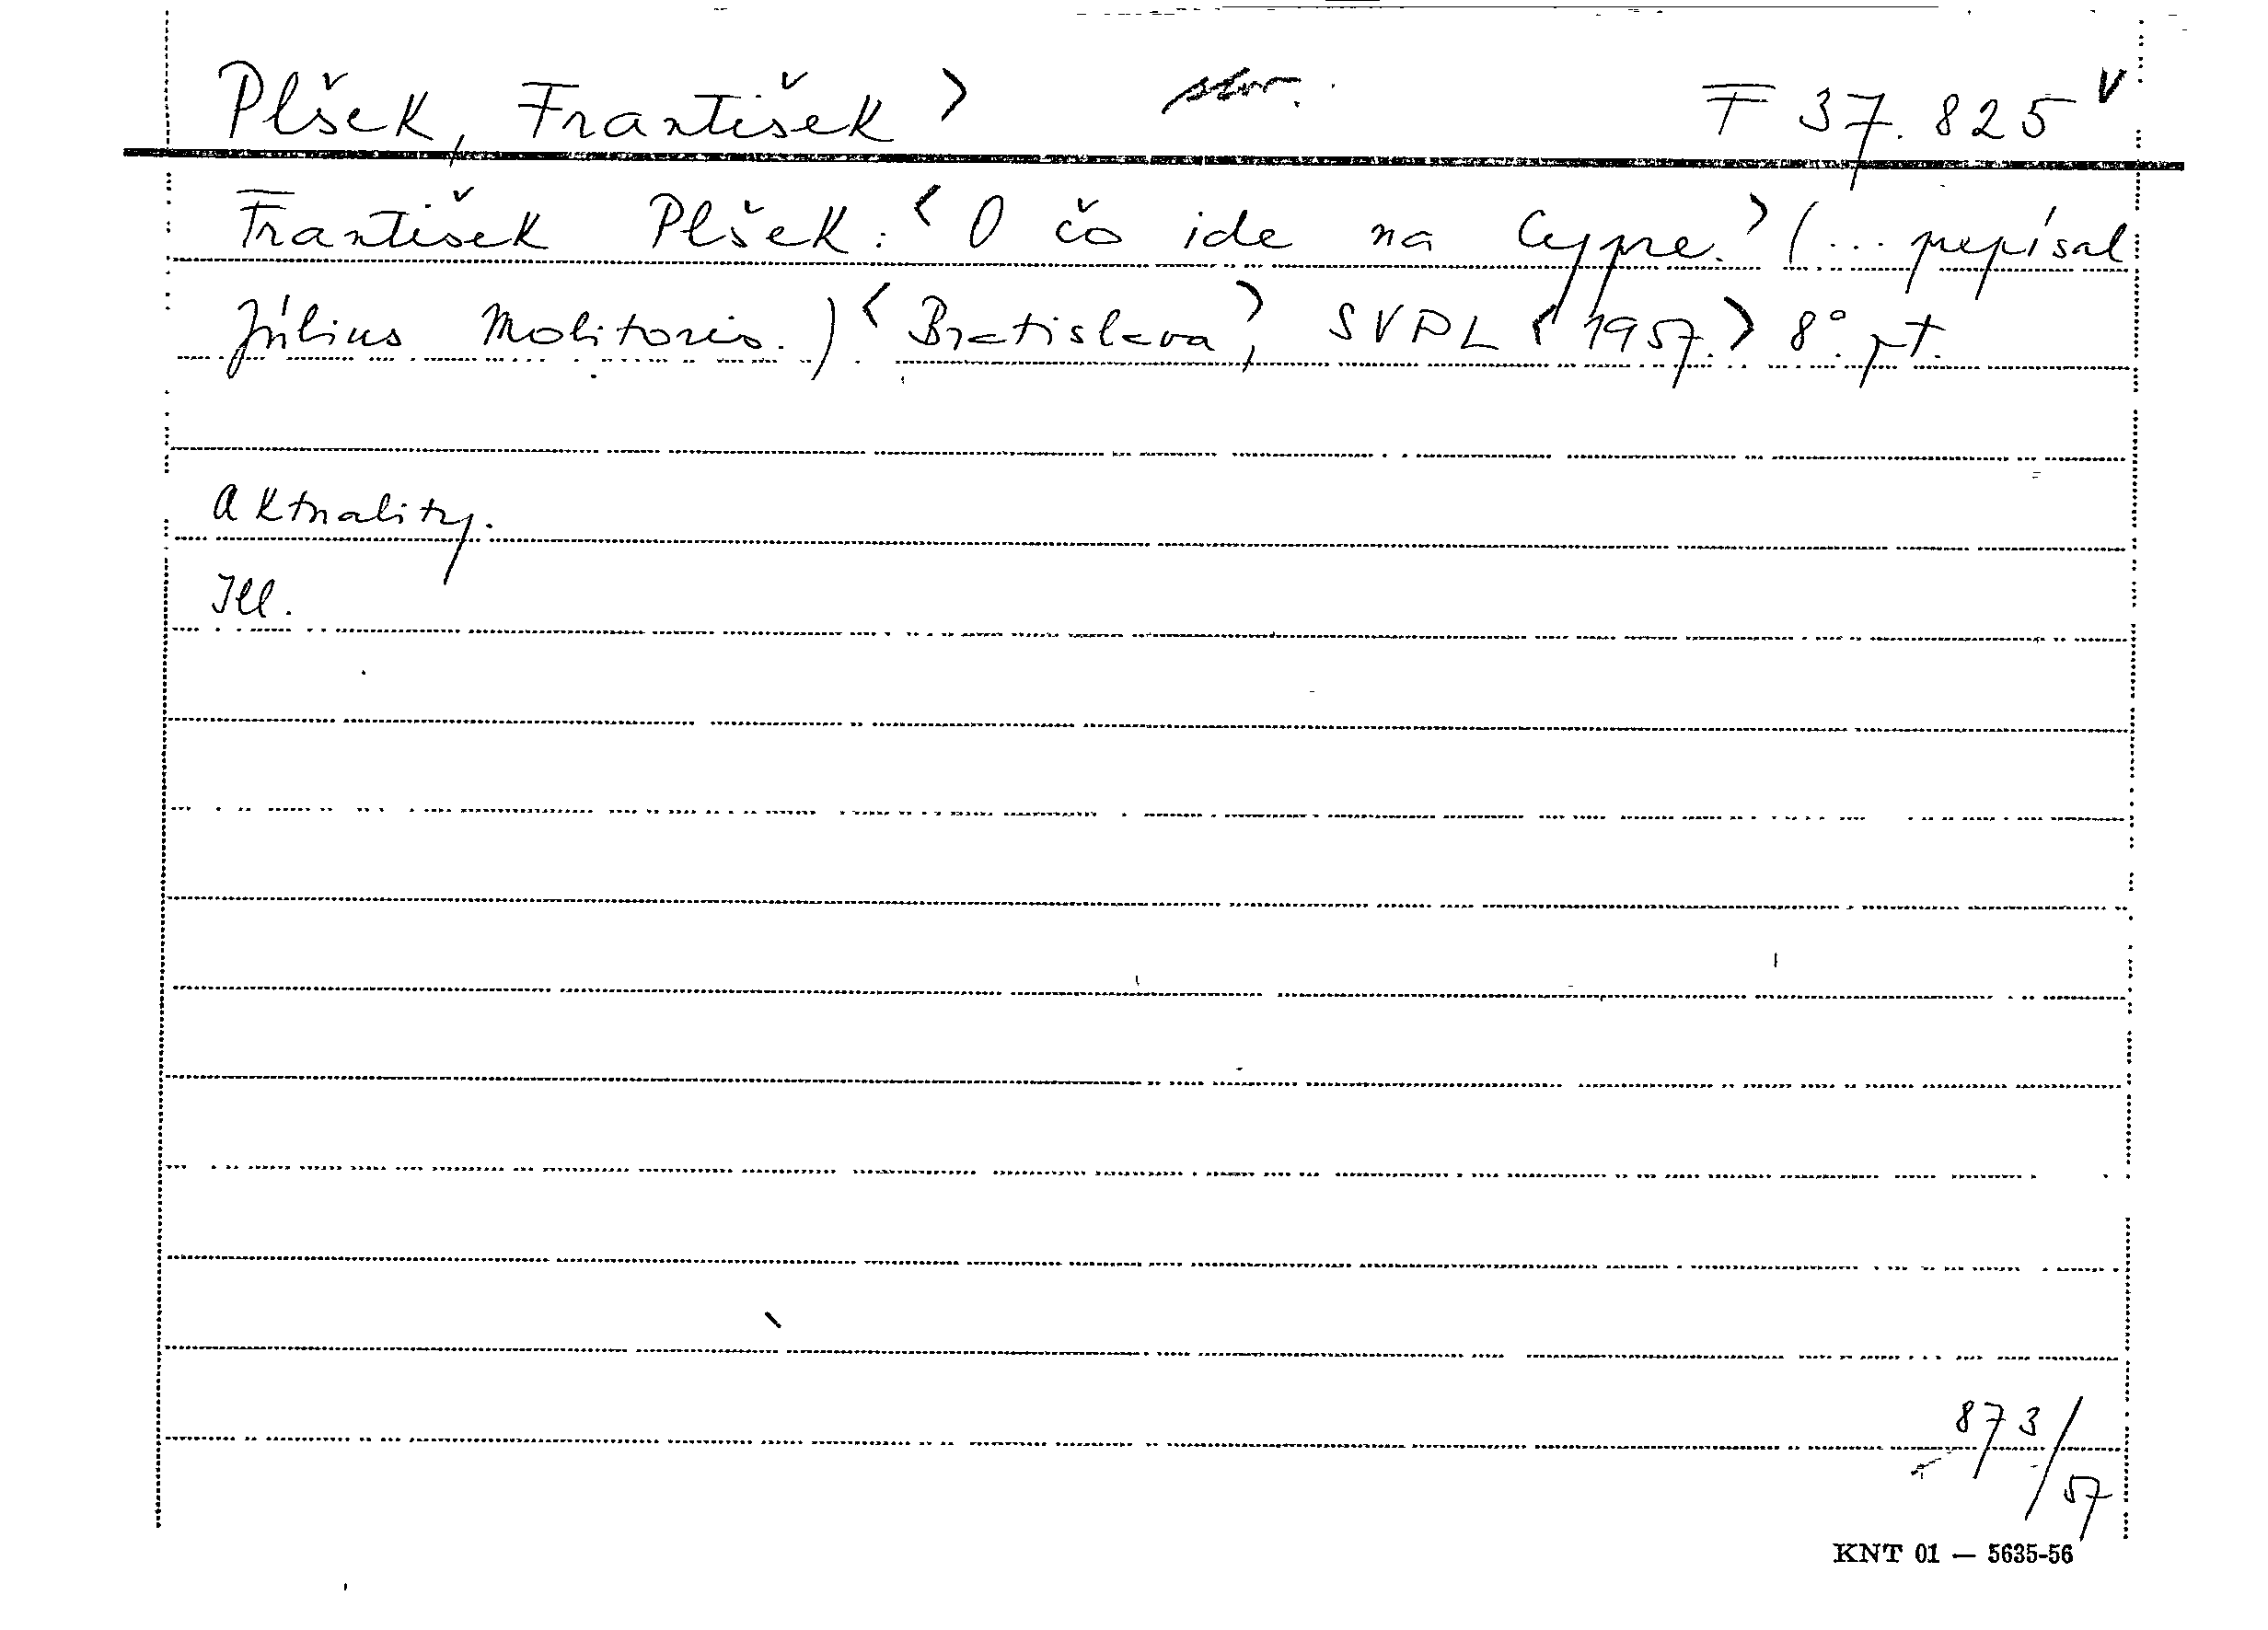 Plšek, František > slov. F 37.825 v
František Plšek: < O čo ide na Cypre. > (... prepísal
Július Molitoris.) < Bratislava >, SVPL < 1957. > 8°. pt.
Aktuality.
Ill.
873/57
KNT 01 — 5635-56